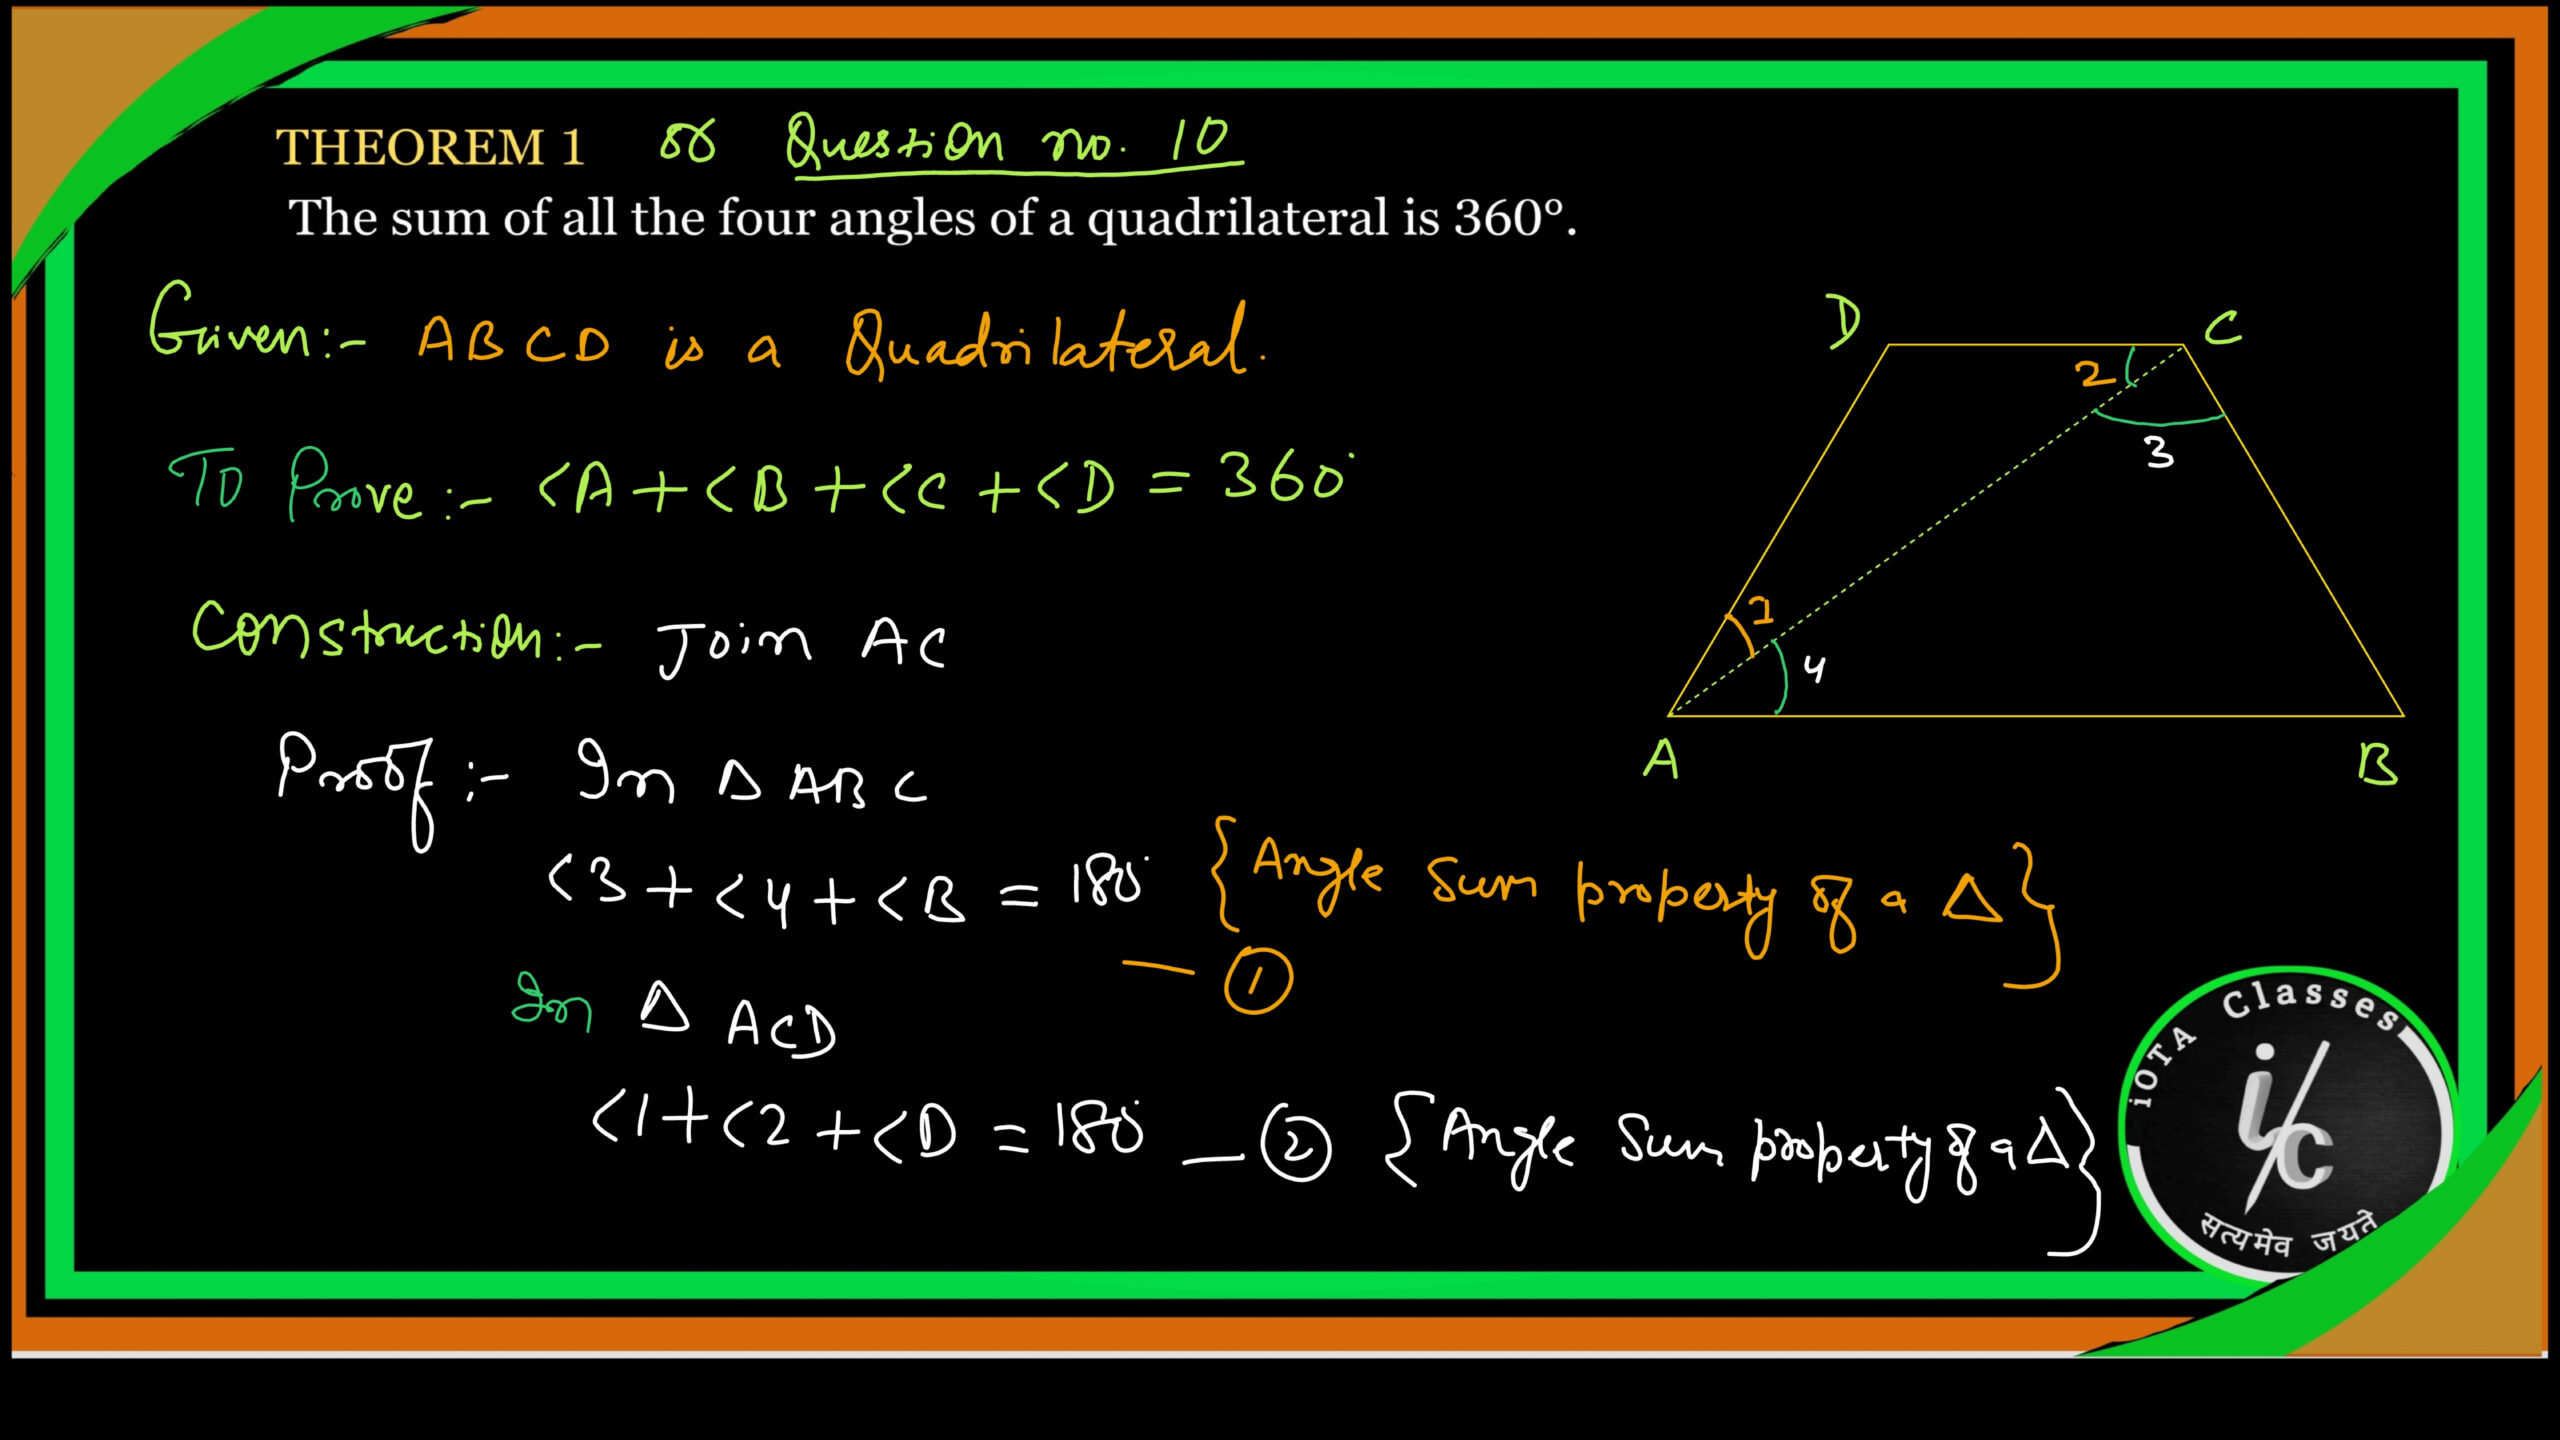 THEOREM 1 or Question no. 10
The sum of all the four angles of a quadrilateral is 360°.
Given:- ABCD is a Quadrilateral.
To Prove:- <A+<B+<C+<D = 360°
Construction:- Join AC
Proof:- In Δ ABC
<3+<4+<B = 180° {Angle Sum property of a Δ}
— ①
In Δ ACD
<1+<2+<D = 180° — ② {Angle Sum property of a Δ}
D
C
2
3
1
4
A
B
iOTA Classes
i/c
सत्यमेव जयते